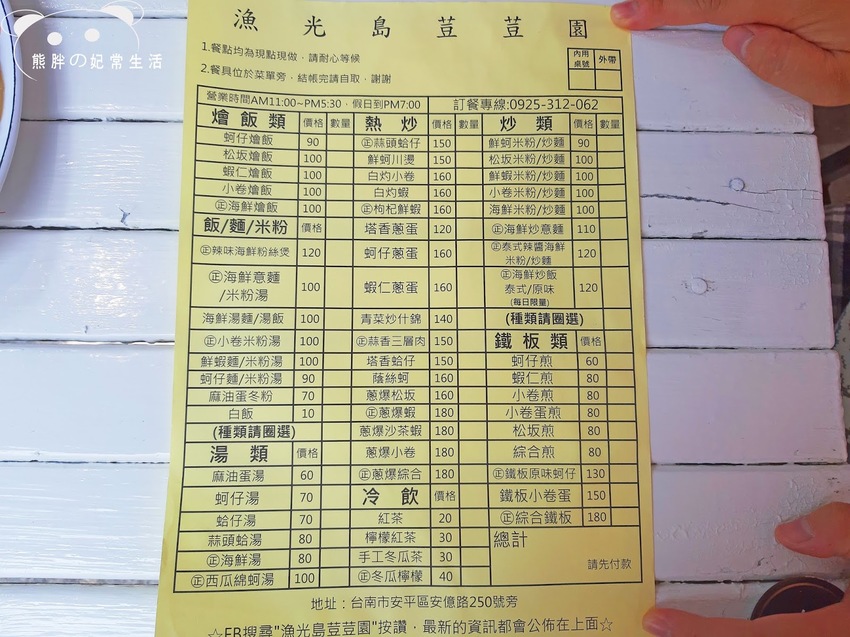 熊胖の妃常生活
漁光島荳荳園
1.餐點均為現點現做，請耐心等候
2.餐具位於菜單旁，結帳完請自取，謝謝
內用桌號 外帶
營業時間AM11:00~PM5:30，假日到PM7:00 訂餐專線:0925-312-062
燴飯類 價格 數量 熱炒 價格 數量 炒類 價格 數量
蚵仔燴飯 90 ㊣蒜頭蛤仔 150 鮮蚵米粉/炒麵 90
松坂燴飯 100 鮮蚵川燙 150 松坂米粉/炒麵 100
蝦仁燴飯 100 白灼小卷 160 鮮蝦米粉/炒麵 100
小卷燴飯 100 白灼蝦 160 小卷米粉/炒麵 100
㊣海鮮燴飯 100 ㊣枸杞鮮蝦 160 海鮮米粉/炒麵 100
飯/麵/米粉 價格 塔香蔥蛋 120 ㊣海鮮炒意麵 110
㊣辣味海鮮粉絲煲 120 蚵仔蔥蛋 160 ㊣泰式辣醬海鮮米粉/炒麵 120
㊣海鮮意麵/米粉湯 100 蝦仁蔥蛋 160 ㊣海鮮炒飯泰式/原味(每日限量) 120
海鮮湯麵/湯飯 100 青菜炒什錦 140 (種類請圈選)
㊣小卷米粉湯 100 ㊣蒜香三層肉 150 鐵板類 價格
鮮蝦麵/米粉湯 100 塔香蛤仔 150 蚵仔煎 60
蚵仔麵/米粉湯 90 蔭絲蚵 160 蝦仁煎 80
麻油蛋冬粉 70 蔥爆松坂 160 小卷煎 80
白飯 10 ㊣蔥爆蝦 180 小卷蛋煎 80
(種類請圈選) 蔥爆沙茶蝦 180 松坂煎 80
湯類 價格 蔥爆小卷 180 綜合煎 80
麻油蛋湯 60 ㊣蔥爆綜合 180 ㊣鐵板原味蚵仔 130
蚵仔湯 70 冷飲 價格 鐵板小卷蛋 150
蛤仔湯 70 紅茶 20 ㊣綜合鐵板 180
蒜頭蛤湯 80 檸檬紅茶 30 總計
㊣海鮮湯 80 手工冬瓜茶 30 請先付款
㊣西瓜綿蚵湯 100 ㊣冬瓜檸檬 40
地址：台南市安平區安億路250號旁
☆FB搜尋"漁光島荳荳園"按讚，最新的資訊都會公佈在上面☆